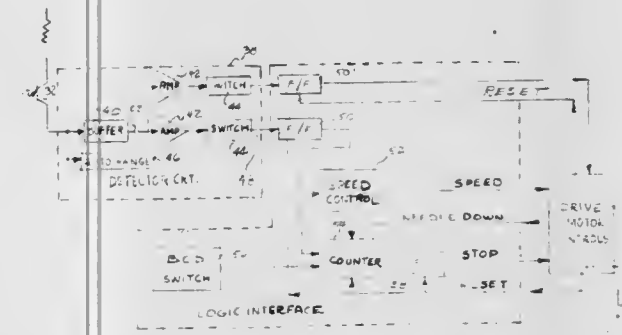 38
42
AMP
SWITCH
44
F/F
50
RESET
32
40
BUFFER
42
AMP
SWITCH
44
F/F
50
46
DETECTOR CKT.
48
52
SPEED CONTROL
SPEED
NEEDLE DOWN
DRIVE MOTOR
BCD SWITCH
54
COUNTER
STOP
SET
58
LOGIC INTERFACE